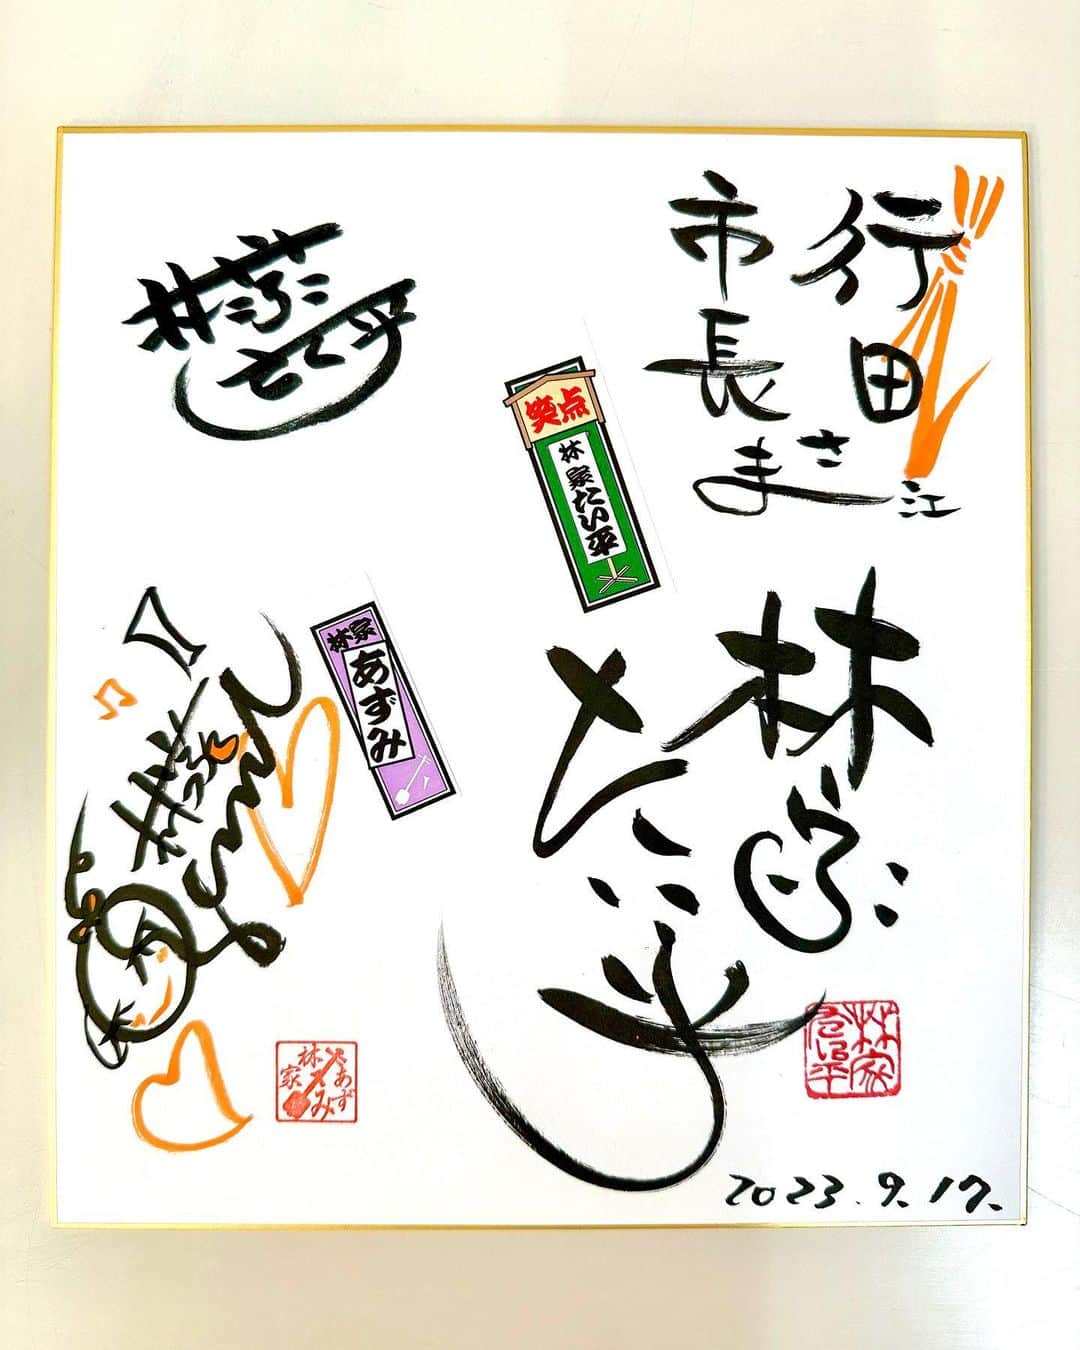 行田
市長
さま
江
林家
たい平
笑点
林家たい平
林家
あずみ
林家
林家
あずみ
林家
2023.9.17.